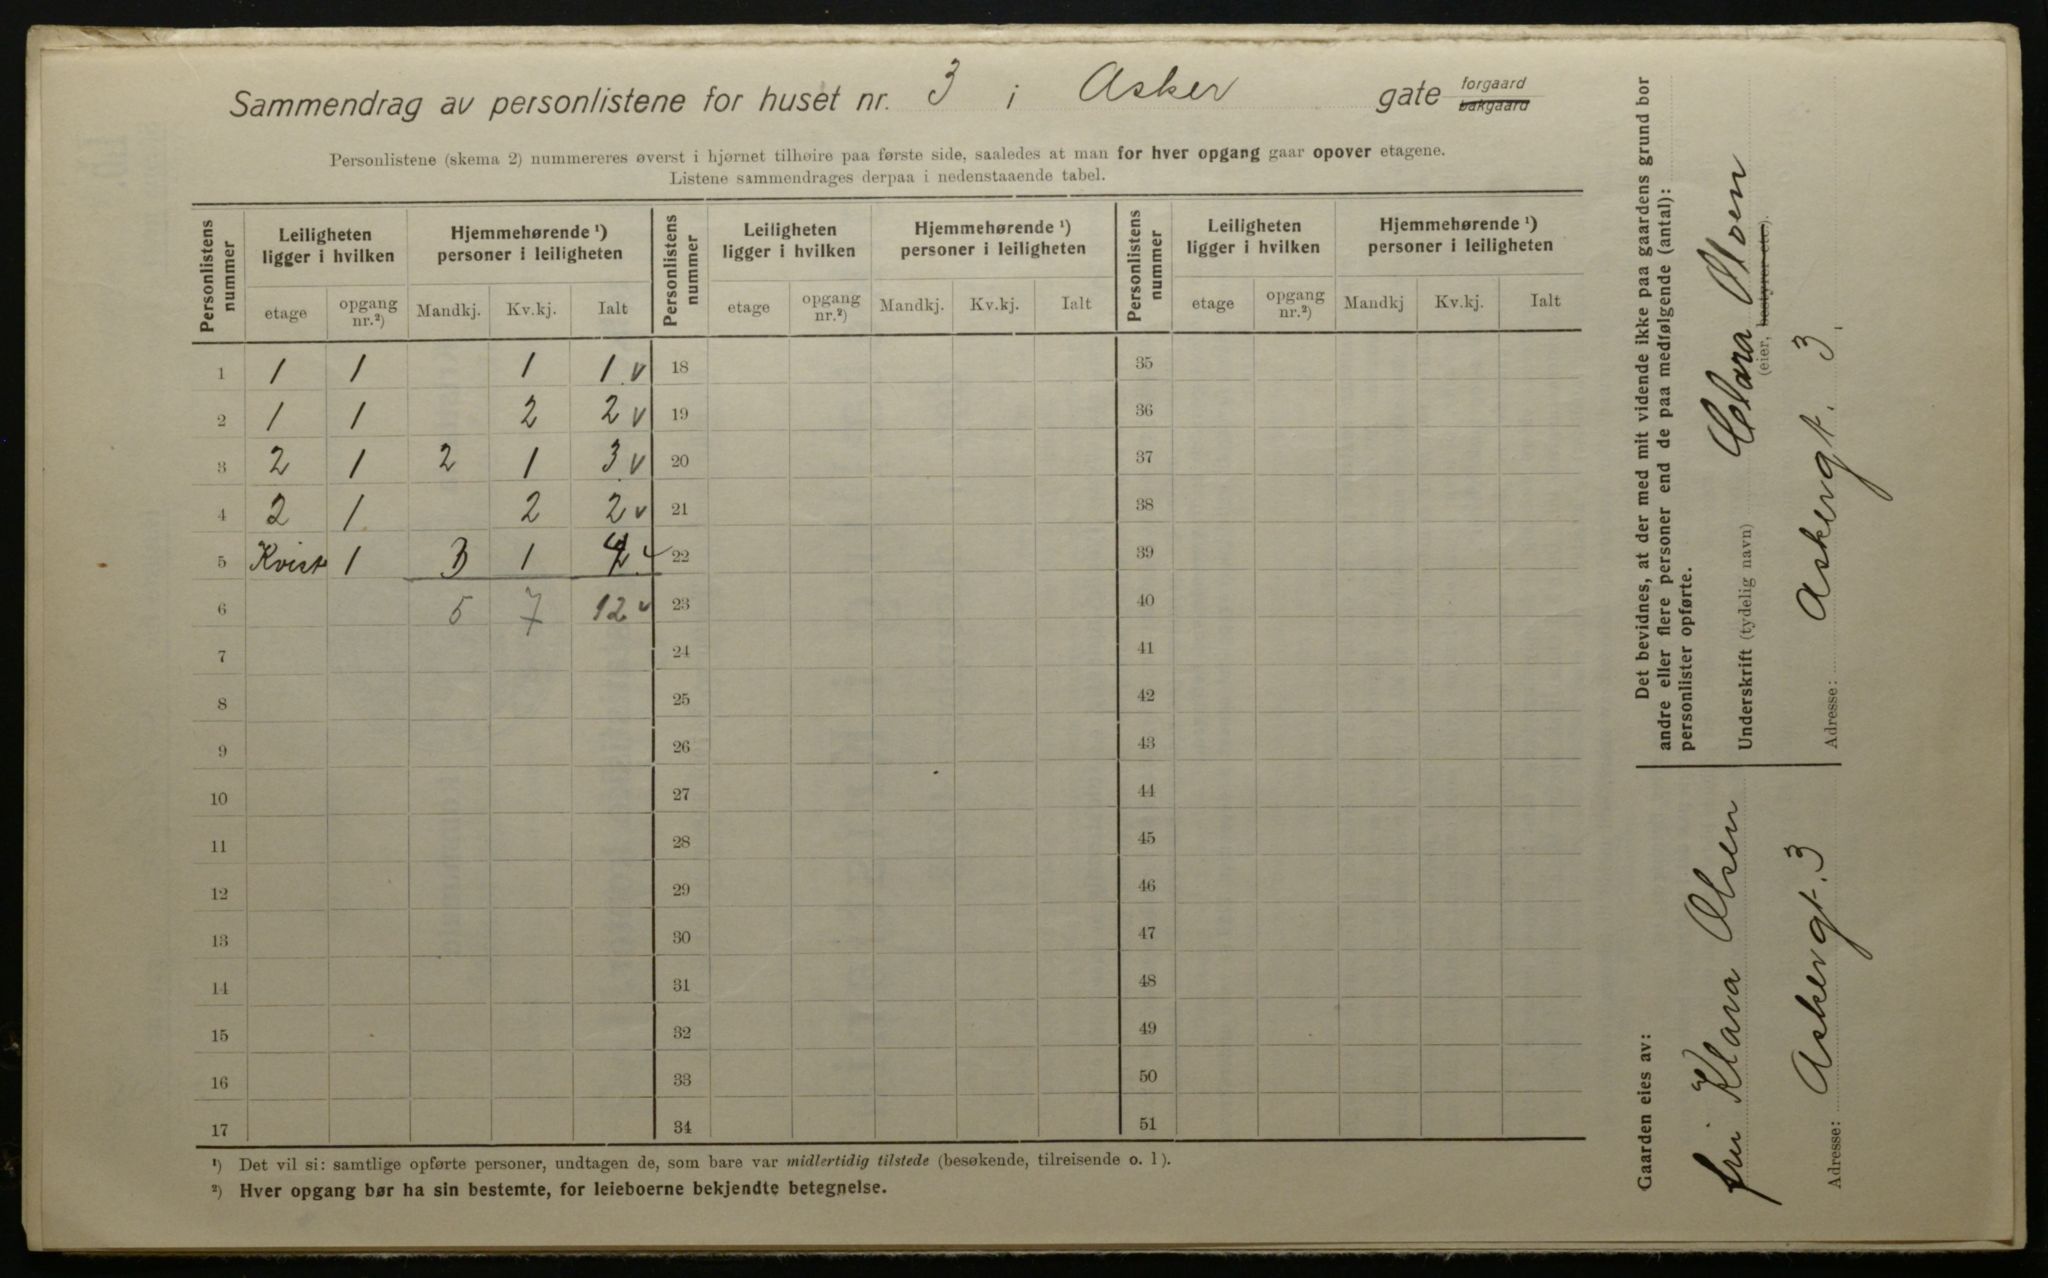 Sammendrag av personlistene for huset nr. 3 i Asker gate forgaard bakgaard
Personlistene (skema 2) nummereres øverst i hjørnet tilhøire paa første side, saaledes at man for hver opgang gaar opover etagene.
Listene sammendrages derpaa i nedenstaaende tabel.
Personlistens nummer | Leiligheten ligger i hvilken | Hjemmehørende ¹) personer i leiligheten | Personlistens nummer | Leiligheten ligger i hvilken | Hjemmehørende ¹) personer i leiligheten | Personlistens nummer | Leiligheten ligger i hvilken | Hjemmehørende ¹) personer i leiligheten
etage | opgang nr.²) | Mandkj. | Kv.kj. | Ialt | etage | opgang nr.²) | Mandkj. | Kv.kj. | Ialt | etage | opgang nr.²) | Mandkj | Kv.kj. | Ialt
1 | 1 | 1 | | 1 | 1 v | 18 | 35
2 | 1 | 1 | | 2 | 2 v | 19 | 36
3 | 2 | 1 | 2 | 1 | 3 v | 20 | 37
4 | 2 | 1 | | 2 | 2 v | 21 | 38
5 | Kvist | 1 | 3 | 1 | 4 v | 22 | 39
6 | | | 5 | 7 | 12 v | 23 | 40
7 | 24 | 41
8 | 25 | 42
9 | 26 | 43
10 | 27 | 44
11 | 28 | 45
12 | 29 | 46
13 | 30 | 47
14 | 31 | 48
15 | 32 | 49
16 | 33 | 50
17 | 34 | 51
¹) Det vil si: samtlige opførte personer, undtagen de, som bare var midlertidig tilstede (besøkende, tilreisende o. l).
²) Hver opgang bør ha sin bestemte, for leieboerne bekjendte betegnelse.
Gaarden eies av:
fru Klara Olsen
Adresse: Askergt. 3
Det bevidnes, at der med mit vidende ikke paa gaardens grund bor
andre eller flere personer end de paa medfølgende (antal):
personlister opførte.
Underskrift (tydelig navn) Clara Moen
(eier, bestyrer etc).
Adresse: Askergt. 3.